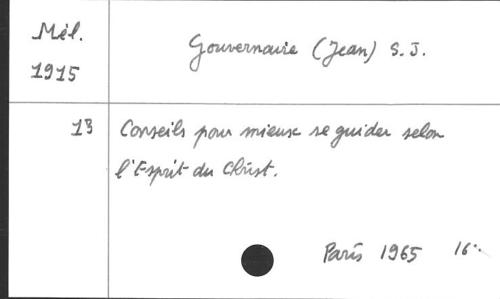 Mél.
1915
Gouvernaire (Jean) S.J.
13
Conseils pour mieux se guider selon
l'Esprit du Christ.
Paris 1965 16°.